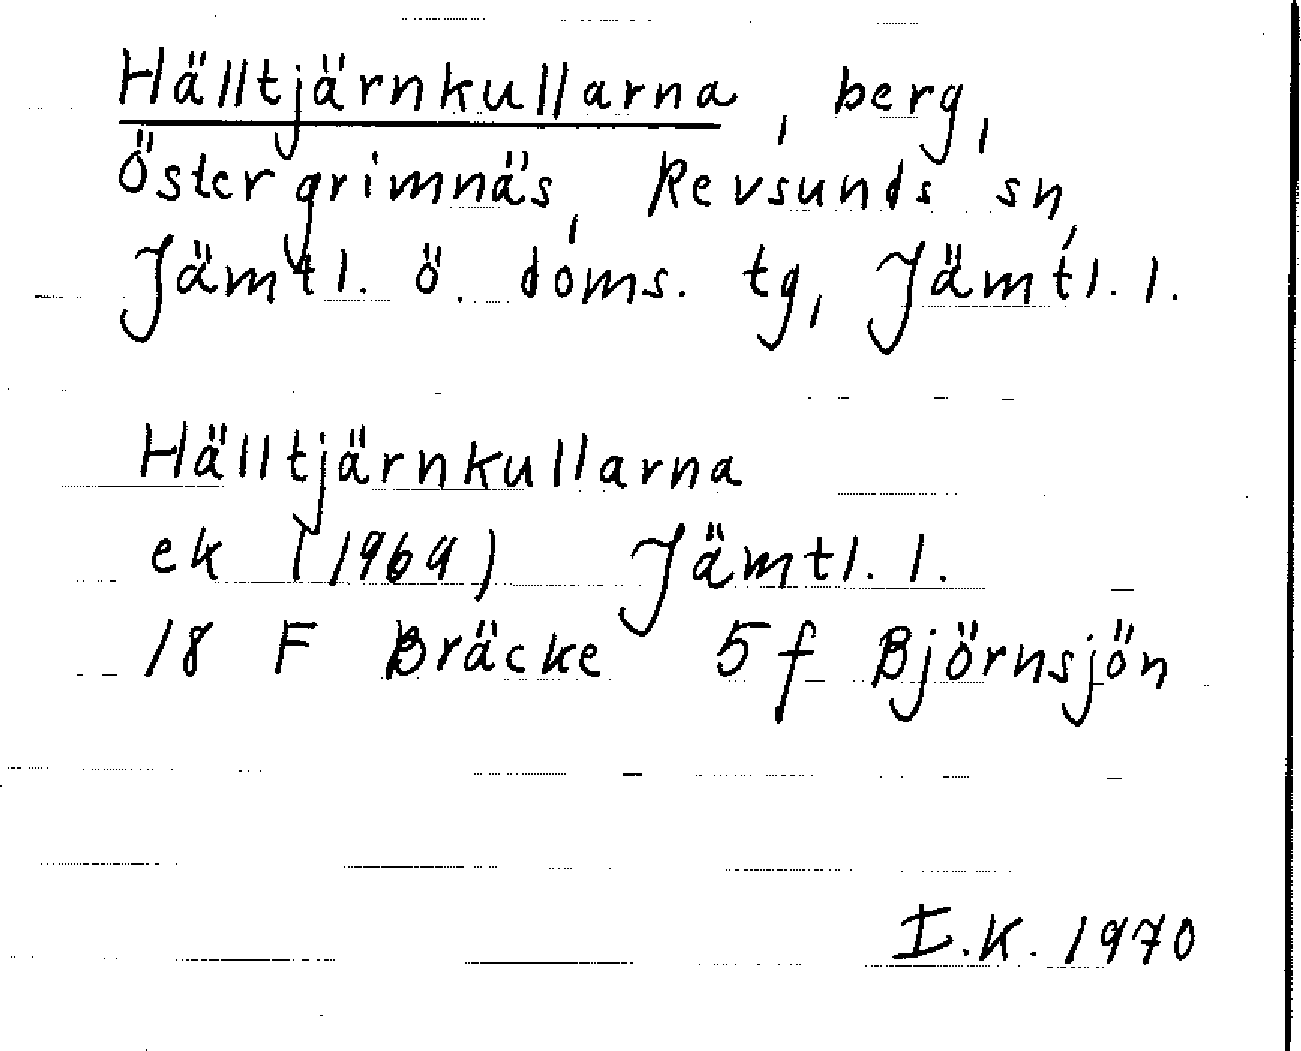 Hälltjärnkullarna, berg,
Östergrimnäs, Revsunds sn,
Jämtl. ö. doms. tg, Jämtl. l.
Hälltjärnkullarna
ek (1969) Jämtl. l.
18 F Bräcke 5 f Björnsjön
I.K. 1970